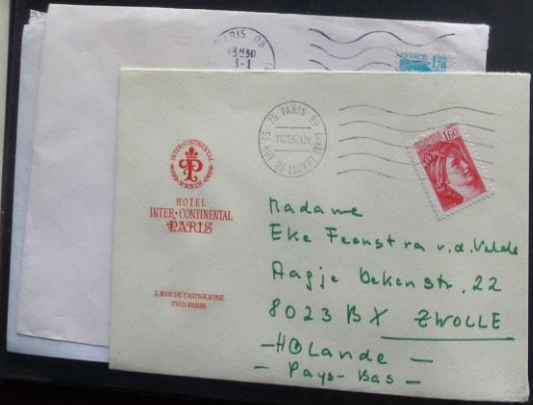 PARIS 08
13H30
3-1
FRANCE 1,70
75 PARIS RP
RUE DU LOUVRE (1er)
1,60
INTER·CONTINENTAL
PARIS
HOTEL
INTER·CONTINENTAL
PARIS
3, RUE DE CASTIGLIONE
75001 PARIS
Madame
Eke Feenstra v.d. Velde
Aagje Dekenstr. 22
8023 BX ZWOLLE
- HOLande -
- Pays-Bas -